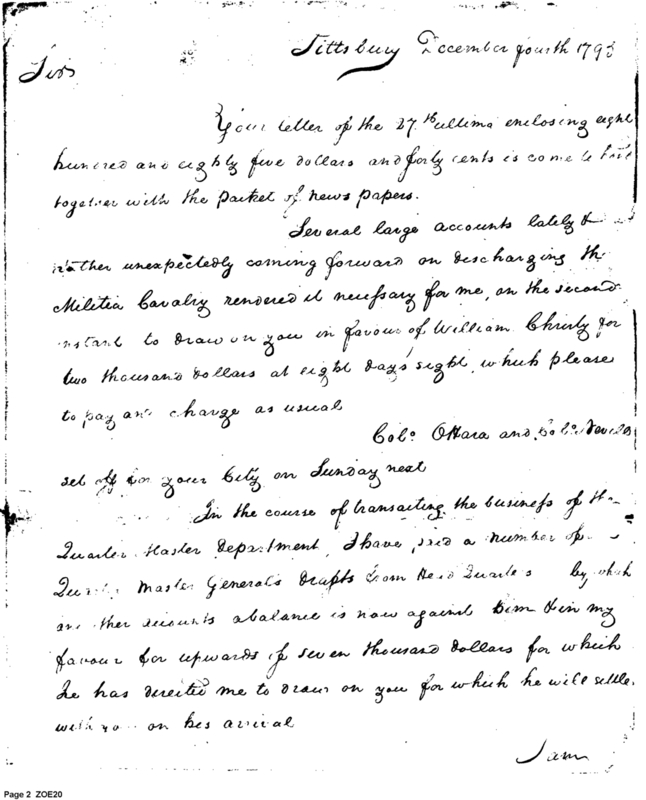 Pittsbury December fourth 1793
Sirs
Your letter of the 27th ultimo enclosing eight
hundred and eighty five dollars and forty cents is come to
together with the packet of news papers.
Several large accounts lately &
rather unexpectedly coming forward on discharging the
Militia Cavalry rendered it necessary for me, on the second
instant to draw on you in favour of William Christy for
two thousand dollars at eight days sight, which please
to pay and charge as usual
Colo. OHara and Colo.
set off for your City on Sunday next
In the course of transacting the business of the
Quarter Master Department, I have paid a number of
Quarter Master Generals Drafts from Head Quarters by which
and other accounts a balance is now against him & in my
favour for upwards of seven thousand dollars for which
he has directed me to draw on you for which he will settle
with you on his arrival
I am
Page 2 ZOE20